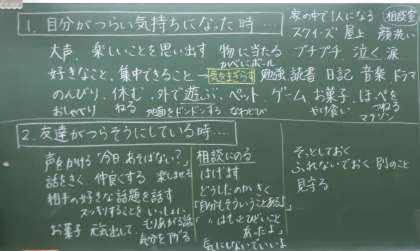 1. 自分がつらい気持ちになった時…
家の中で1人になる 相談室
スクイーズ 屋上 顔洗い
大声 楽しいことを思い出す 物に当たる プチプチ 泣く 涙
かべにボール
好きなこと、集中できること 気をまぎらす 勉強 読書 日記 音楽 ドラマ
のんびり、休む、外で遊ぶ、ペット ゲーム お菓子 ほっぺをつねる
おしゃべり ねる 地面をドンドンする なわとび やけ食い マラソン
2. 友達がつらそうにしている時…
声をかける「今日あそばない?」
話をきく 仲良くする 楽しませる
相手の好きな話題を話す
スッキリすることをいっしょに
お菓子 元気出して もりあがる話
気分を下げる
相談にのる
はげます
どうしたのかきく
「自分もそういうことあるよ」
「 はもっとひどいことあったよ」
気にしないでいいよ
そっとしておく
ふれないでおく 別のこと
見守る